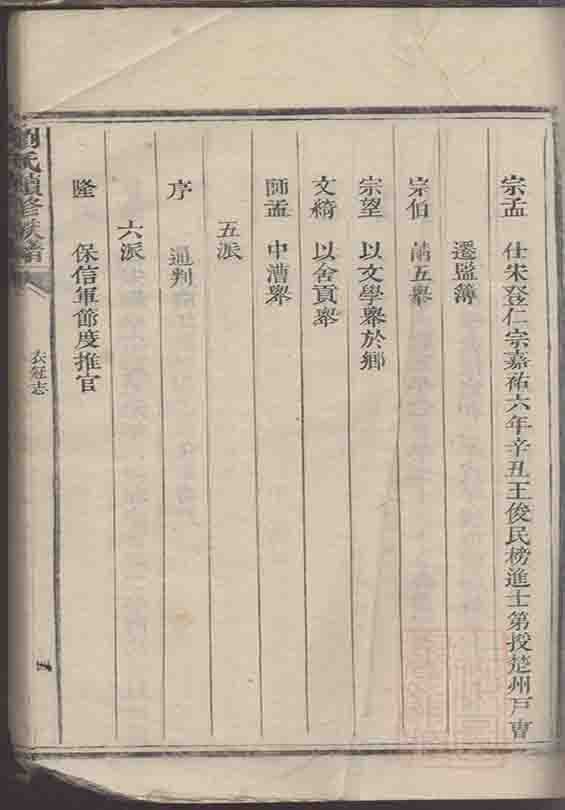 宗孟　仕宋登仁宗嘉祐六年辛丑王俊民榜進士第授楚州戸曹
遷監簿
宗伯　五舉
宗望　以文學舉於鄉
文綺　以舍貢舉
師孟　中漕舉
五派
序　通判
六派
隆　保信軍節度推官
劉氏續修族譜
衣冠志